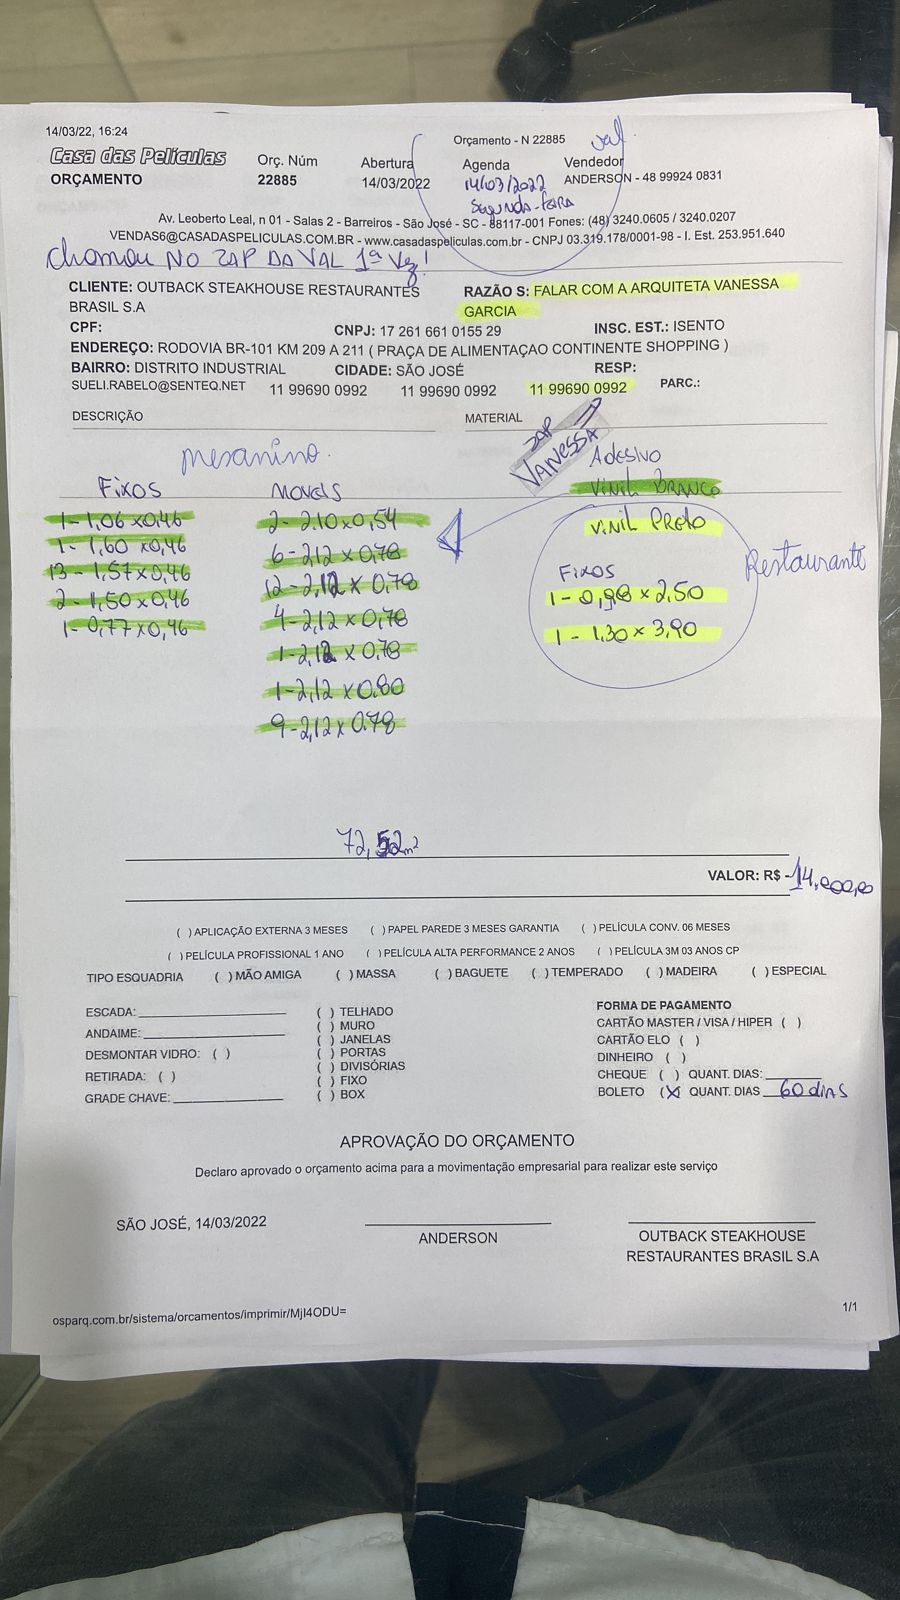 14/03/22, 16:24
Orçamento - N 22885
Val
Casa das Películas
ORÇAMENTO
Orç. Núm
22885
Abertura
14/03/2022
Agenda
14/03/2022
Segunda-feira
Vendedor
ANDERSON - 48 99924 0831
Av. Leoberto Leal, n 01 - Salas 2 - Barreiros - São José - SC - 88117-001 Fones: (48) 3240.0605 / 3240.0207
VENDAS6@CASADASPELICULAS.COM.BR - www.casadaspeliculas.com.br - CNPJ 03.319.178/0001-98 - I. Est. 253.951.640
Chamou NO ZAP DA VAL 1ª Vez!
CLIENTE: OUTBACK STEAKHOUSE RESTAURANTES
BRASIL S.A
RAZÃO S: FALAR COM A ARQUITETA VANESSA
GARCIA
CPF:
CNPJ: 17 261 661 0155 29
INSC. EST.: ISENTO
ENDEREÇO: RODOVIA BR-101 KM 209 A 211 ( PRAÇA DE ALIMENTAÇAO CONTINENTE SHOPPING )
BAIRRO: DISTRITO INDUSTRIAL
CIDADE: SÃO JOSÉ
RESP:
SUELI.RABELO@SENTEQ.NET
11 99690 0992
11 99690 0992
11 99690 0992
PARC.:
DESCRIÇÃO
MATERIAL
ZAP
VANESSA
mesanino.
Fixos
1 - 1,06 x 0,46
1 - 1,60 x 0,46
13 - 1,57 x 0,46
2 - 1,50 x 0,46
1 - 0,77 x 0,46
Moveis
2 - 2.10 x 0,54
6 - 2,12 x 0,78
12 - 2,12 x 0,78
4 - 2,12 x 0,78
1 - 2,12 x 0,78
1 - 2,12 x 0,80
9 - 2,12 x 0,78
Adesivo
Vinil Branco
Vinil Preto
Restaurante
Fixos
1 - 0,98 x 2,50
1 - 1,30 x 3,90
72,52m²
VALOR: R$ - 14.000,00
( ) APLICAÇÃO EXTERNA 3 MESES ( ) PAPEL PAREDE 3 MESES GARANTIA ( ) PELÍCULA CONV. 06 MESES
( ) PELÍCULA PROFISSIONAL 1 ANO ( ) PELÍCULA ALTA PERFORMANCE 2 ANOS ( ) PELÍCULA 3M 03 ANOS CP
TIPO ESQUADRIA ( ) MÃO AMIGA ( ) MASSA ( ) BAGUETE ( ) TEMPERADO ( ) MADEIRA ( ) ESPECIAL
ESCADA:
ANDAIME:
DESMONTAR VIDRO: ( )
RETIRADA: ( )
GRADE CHAVE:
( ) TELHADO
( ) MURO
( ) JANELAS
( ) PORTAS
( ) DIVISÓRIAS
( ) FIXO
( ) BOX
FORMA DE PAGAMENTO
CARTÃO MASTER / VISA / HIPER ( )
CARTÃO ELO ( )
DINHEIRO ( )
CHEQUE ( ) QUANT. DIAS:
BOLETO (X) QUANT. DIAS 60 dias
APROVAÇÃO DO ORÇAMENTO
Declaro aprovado o orçamento acima para a movimentação empresarial para realizar este serviço
SÃO JOSÉ, 14/03/2022
ANDERSON
OUTBACK STEAKHOUSE
RESTAURANTES BRASIL S.A
osparq.com.br/sistema/orcamentos/imprimir/MjI4ODU=
1/1